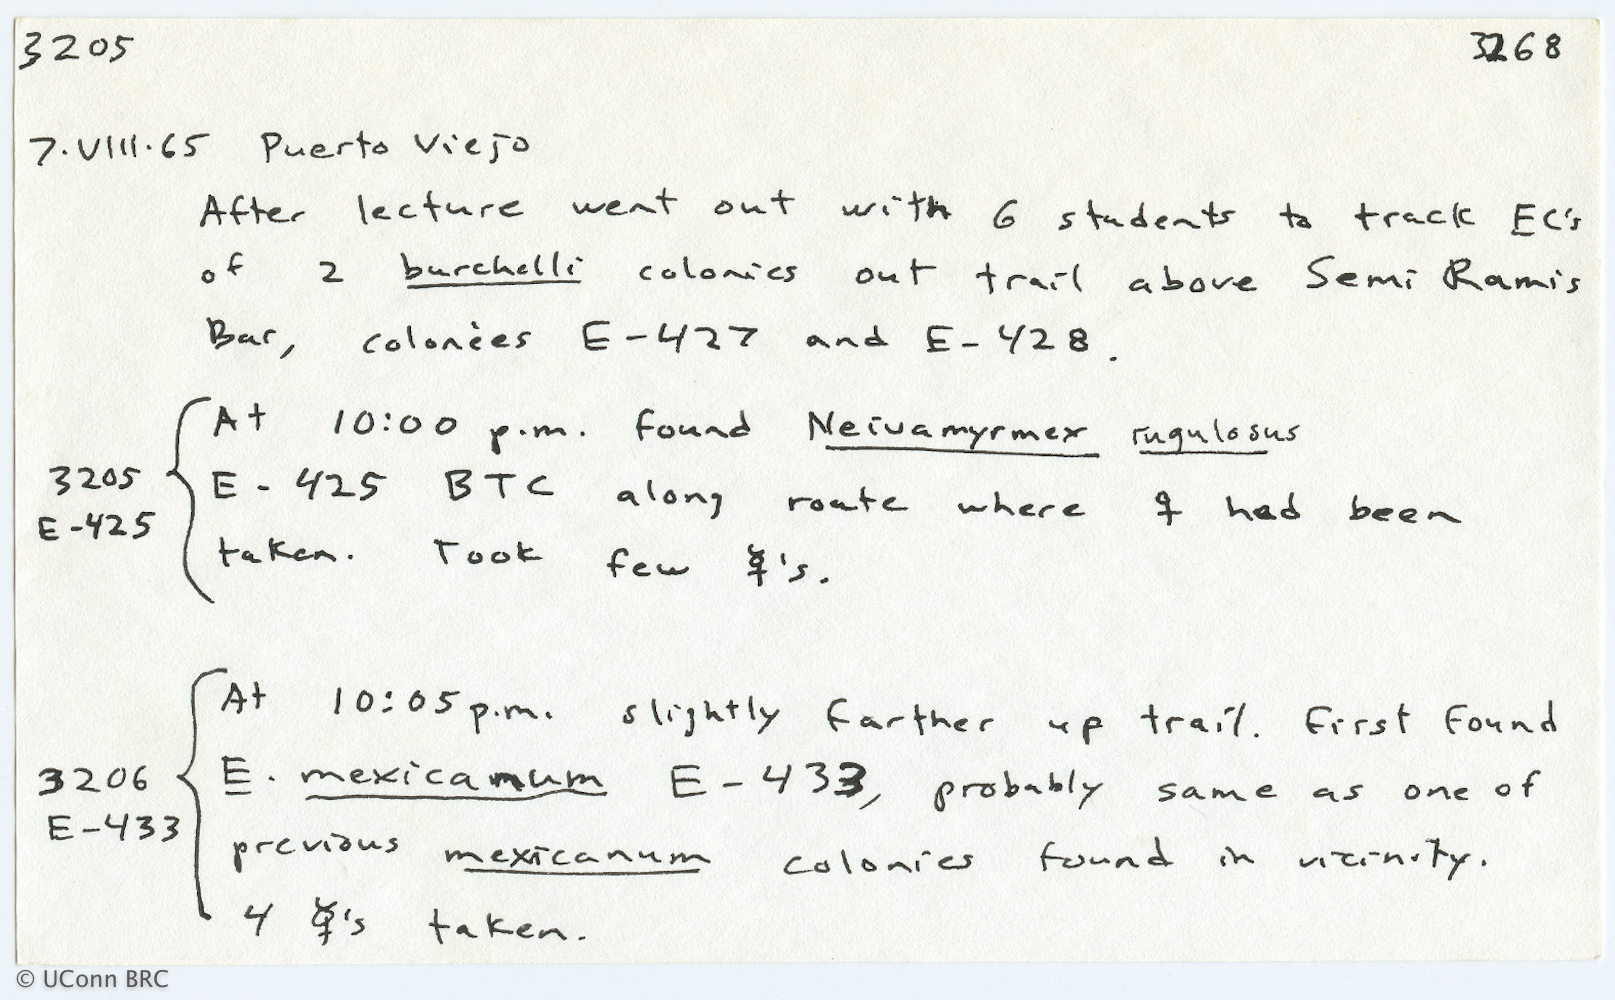 3205 3268
7.VIII.65 Puerto Viejo
After lecture went out with 6 students to track EC's
of 2 burchelli colonies out trail above Semi Ramis
Bar, colonies E-427 and E-428.
At 10:00 p.m. found Neivamyrmex rugulosus
3205 E-425 BTC along route where ♀ had been
E-425 taken. Took few ☿'s.
At 10:05 p.m. slightly farther up trail. First found
3206 E. mexicanum E-433, probably same as one of
E-433 previous mexicanum colonies found in vicinity.
4 ☿'s taken.
© UConn BRC